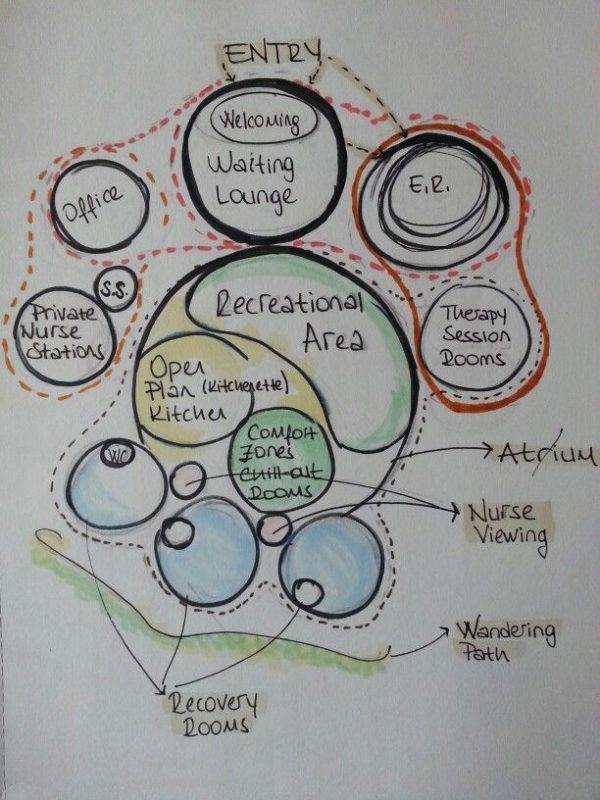 ENTRY
Welcoming
Waiting
Lounge
Office
E.R.
S.S.
Private
Nurse
Stations
Recreational
Area
Therapy
Session
Rooms
Open
Plan (Kitchenette)
Kitchen
Comfort
Zones
Chill-out
Rooms
WC
Atrium
Nurse
Viewing
Wandering
Path
Recovery
Rooms